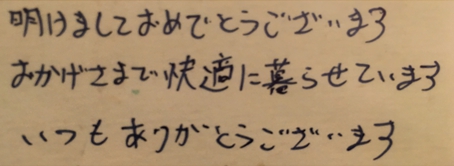 明けましておめでとうございます
おかげさまで快適に暮らせています
いつもありがとうございます